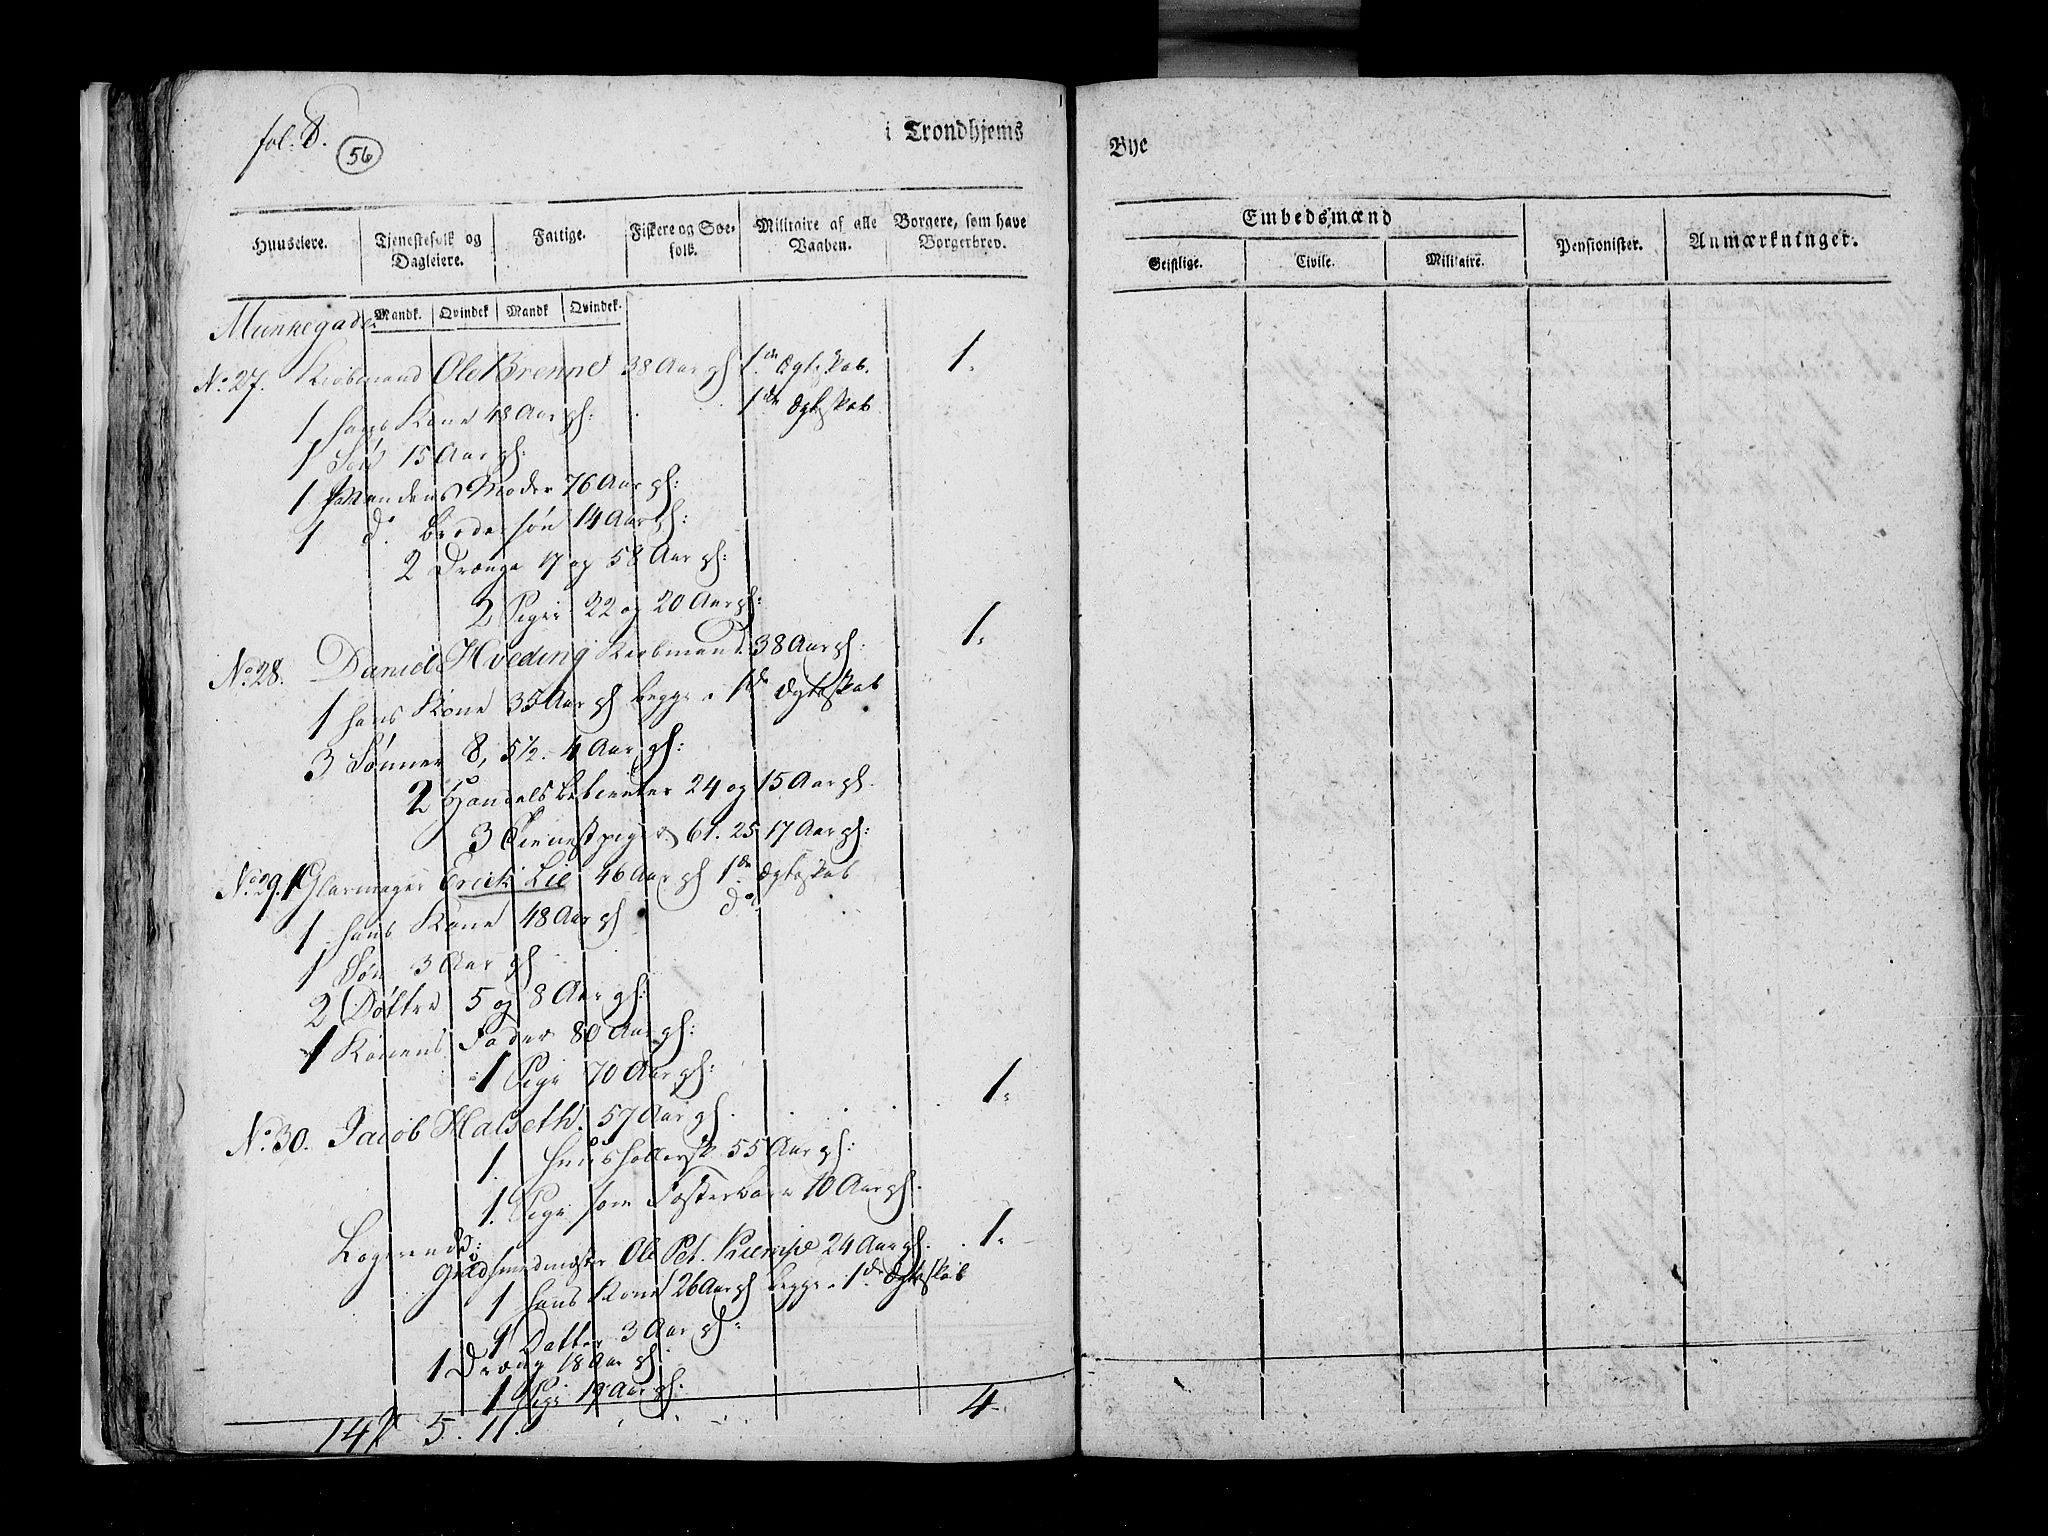 fol. 8.
56
i Trondhjems
Huuseiere. Tjenestefolk og Dagleiere. Fattige. Fiskere og Søe-folk. Militaire af alle Vaaben. Borgere, som have Borgerbrev.
Mandk. Qvindek Mandk Qvindek.
Munkegade
No 27. Kiøbmand Ole Brenne 38 Aar gl 1de Ægteskab. 1.
1 hans Kone 48 Aar gl: 1de Ægteskab
1 Søn 15 Aar gl:
1 Mandens Moder 76 Aar gl:
1 do Broder søn 14 Aar gl:
2 Drænge 17 og 58 Aar gl:
2 Piger 22 og 20 Aar gl:
No 28. Daniel Hveding Kiøbmand 38 Aar gl: 1.
1 hans Kone 35 Aar gl begge i 1de Ægteskab
3 Sønner 8, 5½. 4 Aar gl:
2 Handels betienter 24 og 15 Aar gl.
3 Tienestpiger 61. 25 17 Aar gl:
No 29. 1 Glarmager Erick Lie 46 Aar gl 1de Ægteskab
1 hans Kone 48 Aar gl do
1 Søn 3 Aar gl
2 Døttre 5 og 8 Aar gl:
1 Konens Fader 80 Aar gl:
1 Pige 70 Aar gl:
No 30. Jacob Halseth. 57 Aar gl. 1.
1. Huusholdersk 55 Aar gl:
1. Pige som Fosterbarn 10 Aar gl.
Logerende:
Guldsmedmester Ole Pet. 24 Aar gl. 1.
1 hans Kone 26 Aar gl begge i 1de Ægteskab
1 Datter 3 Aar gl:
1 Dræng 18 Aar gl.
1 Pige 19 Aar gl:
14 5. 11. 4
Bye
Embedsmænd
Geistlige. Civile. Militaire. Pensionister. Anmærkninger.